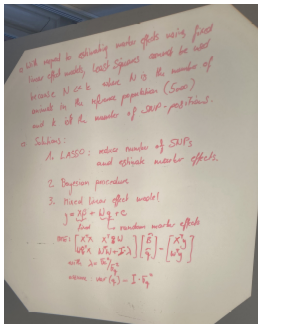 o With regard to estimating marker effects using fixed
linear effect models, Least Squares cannot be used
because N << k where N is the number of
animals in the reference population (5000)
and k is the number of SNP-positions.
o Solutions:
1. LASSO: reduce number of SNPs
and estimate marker effects.
2. Bayesian procedure
3. Mixed linear effect model
y = Xβ + Wq + e
random marker effects
assume var(q) = I·σq²